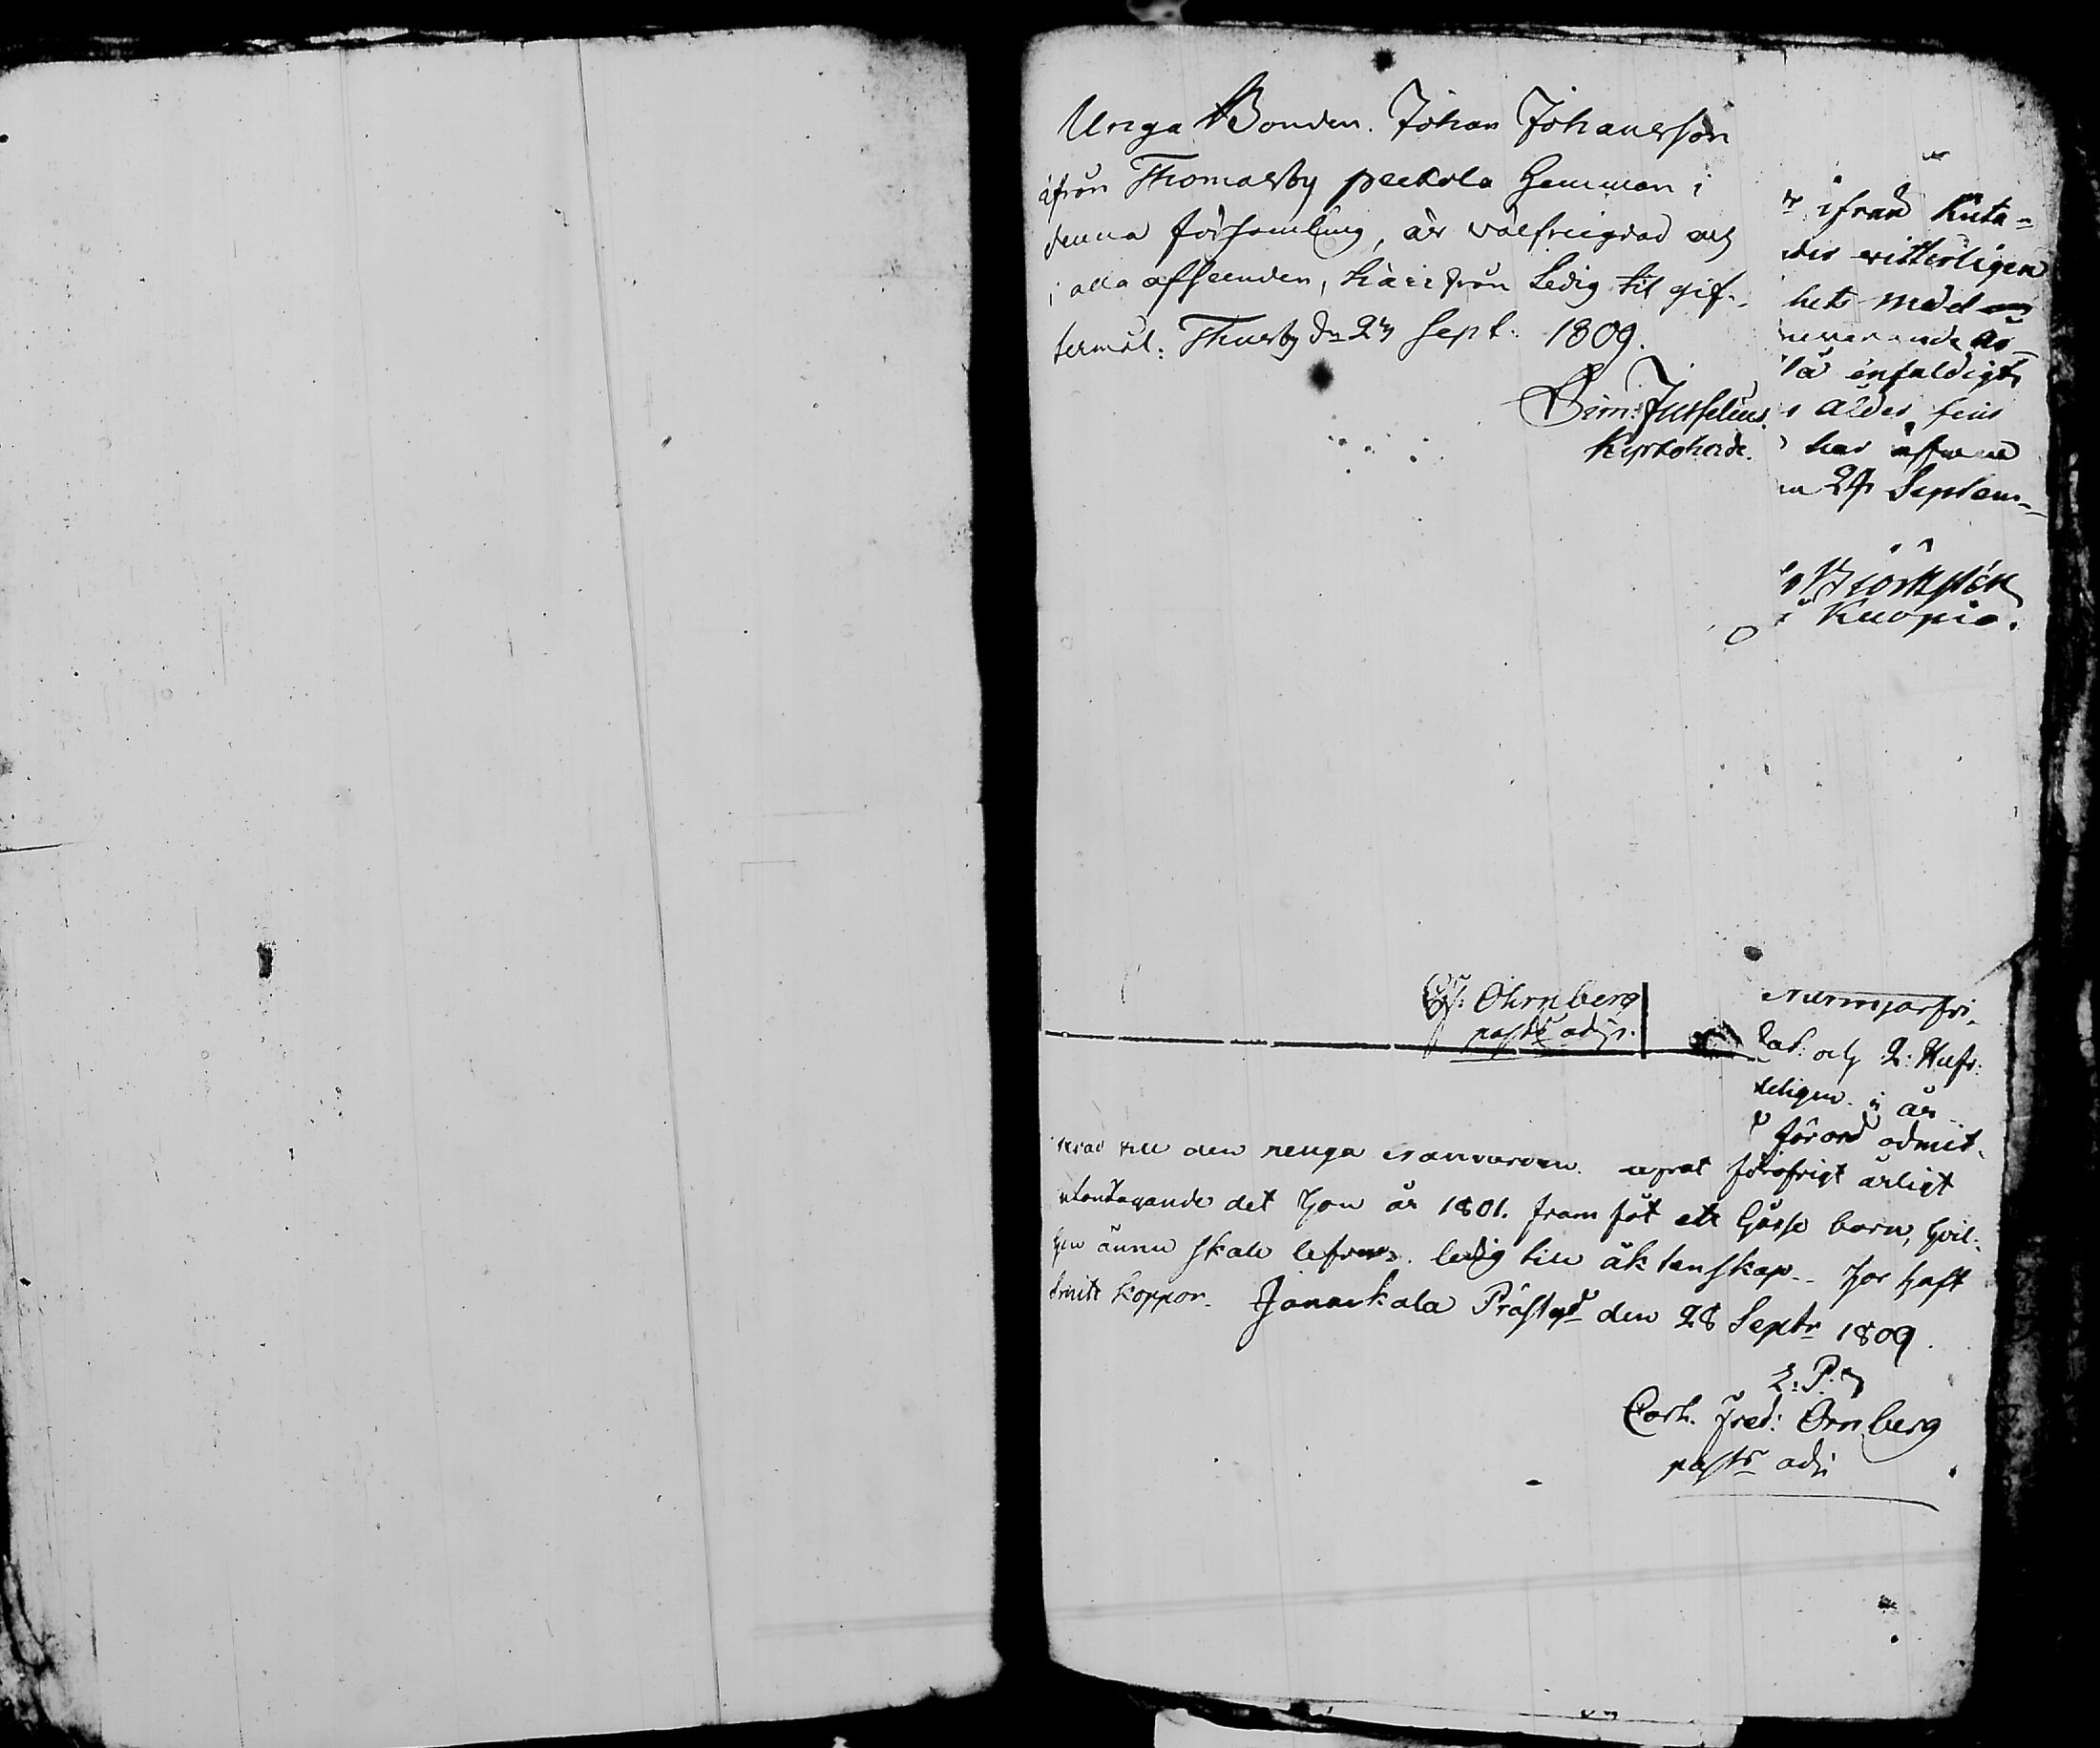 Unga Bonden. Johan Johansson
ifrån Thomasby peckola Hemman i
denna församling, är välfreigdad och
i alla afseenden, häri från Ledig til gif-
termål: Thusby d. 27 Sept. 1809.
Sim: Jusselius.
Kyrkoherde.
ifrån Kuta-
witterligen
hets med
närvarande år
enfaldigt
ålder, sin
har äfven
27 Septem-
Björklöf
i Kuopio.
Ohrnberg
past: adj.
Nurmijärfvi
Cat: och L: Hust:
ligen i år
förord admit-
terad till den renga förofrigt ärligt
utantagande det hon år 1801. fram födt ett Gosse barn, hvil-
ken ännu skall lefva. ledig till äktenskap. har haft
koppor. Janakkala Prästgd den 28 Septr 1809.
L: P:
Carl. Fred: Örnberg
pastr adj: